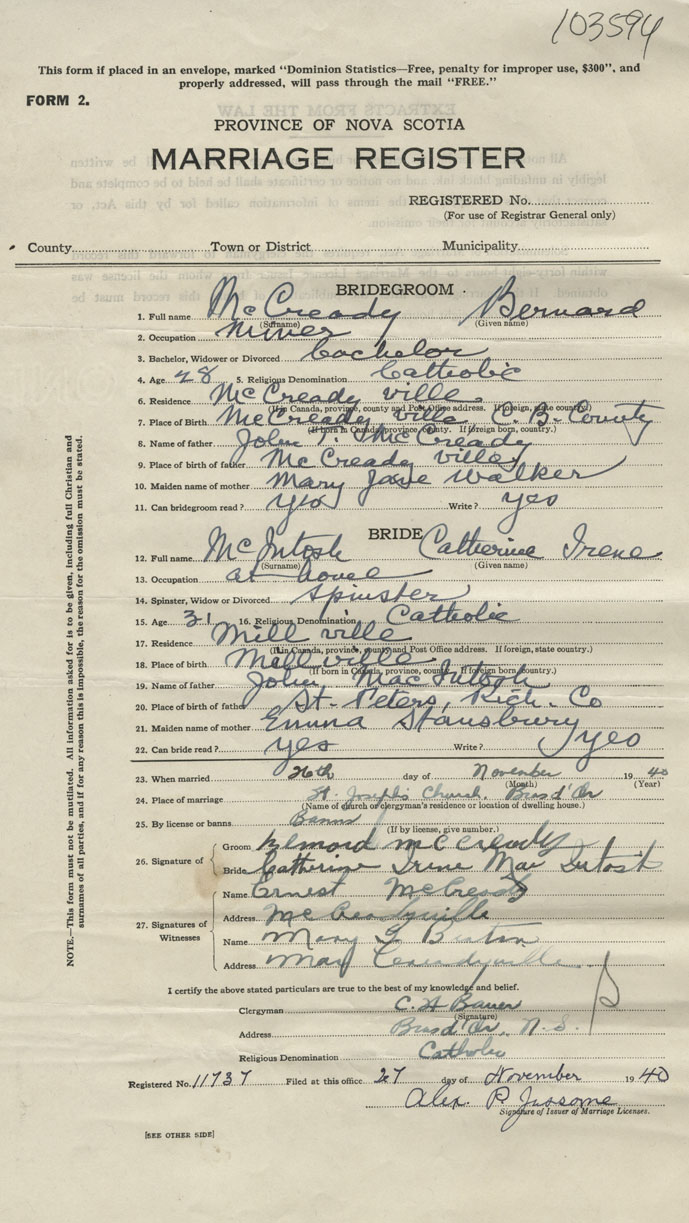 103594
This form if placed in an envelope, marked "Dominion Statistics—Free, penalty for improper use, $300", and
properly addressed, will pass through the mail "FREE."
FORM 2.
PROVINCE OF NOVA SCOTIA
MARRIAGE REGISTER
REGISTERED No.
(For use of Registrar General only)
County Town or District Municipality
BRIDEGROOM
1. Full name McCready Bernard
(Surname) (Given name)
2. Occupation miner
3. Bachelor, Widower or Divorced bachelor
4. Age 28 5. Religious Denomination Catholic
6. Residence McCready ville
(If in Canada, province, county and Post Office address. If foreign, state country.)
7. Place of Birth McCready ville C. B. County
(If born in Canada, province, county. If foreign born, country.)
8. Name of father John T. McCready
9. Place of birth of father McCready ville
10. Maiden name of mother Mary Jane Walker
11. Can bridegroom read? yes Write? yes
BRIDE
12. Full name McIntosh Catherine Irene
(Surname) (Given name)
13. Occupation at home
14. Spinster, Widow or Divorced Spinster
15. Age 31 16. Religious Denomination Catholic
17. Residence Mill ville
(If in Canada, province, county and Post Office address. If foreign, state country.)
18. Place of birth Mill ville
(If born in Canada, province, county. If foreign born, country.)
19. Name of father John MacIntosh
20. Place of birth of father St. Peters, Rich. Co
21. Maiden name of mother Emma Stansbury
22. Can bride read? yes Write? yes
23. When married 26th day of November 1940
(Month) (Year)
24. Place of marriage St. Joseph's Church. Bras d'Or
(Name of church or clergyman's residence or location of dwelling house.)
25. By license or banns Banns
(If by license, give number.)
26. Signature of
Groom McCready
Bride Catherine Irene MacIntosh
27. Signatures of Witnesses
Name Ernest McCready
Address McCreadyville
Name Mary
Address McCreadyville
I certify the above stated particulars are true to the best of my knowledge and belief.
Clergyman C. H. Bauer
(Signature)
Address Bras d'Or, N. S.
Religious Denomination Catholic
Registered No. 11737 Filed at this office 27 day of November 1940
Alex. P. Jessome
Signature of Issuer of Marriage Licenses.
[SEE OTHER SIDE]
NOTE.—This form must not be mutilated. All information asked for is to be given, including full Christian and
surnames of all parties, and if for any reason this is impossible, the reason for the omission must be stated.